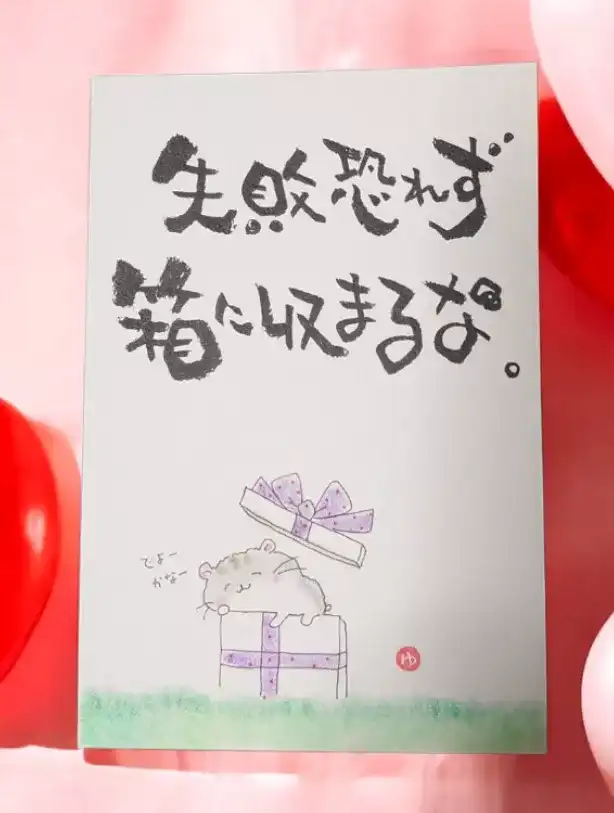 失敗恐れず
箱に収まるな。
でよー
かなー
ゆ